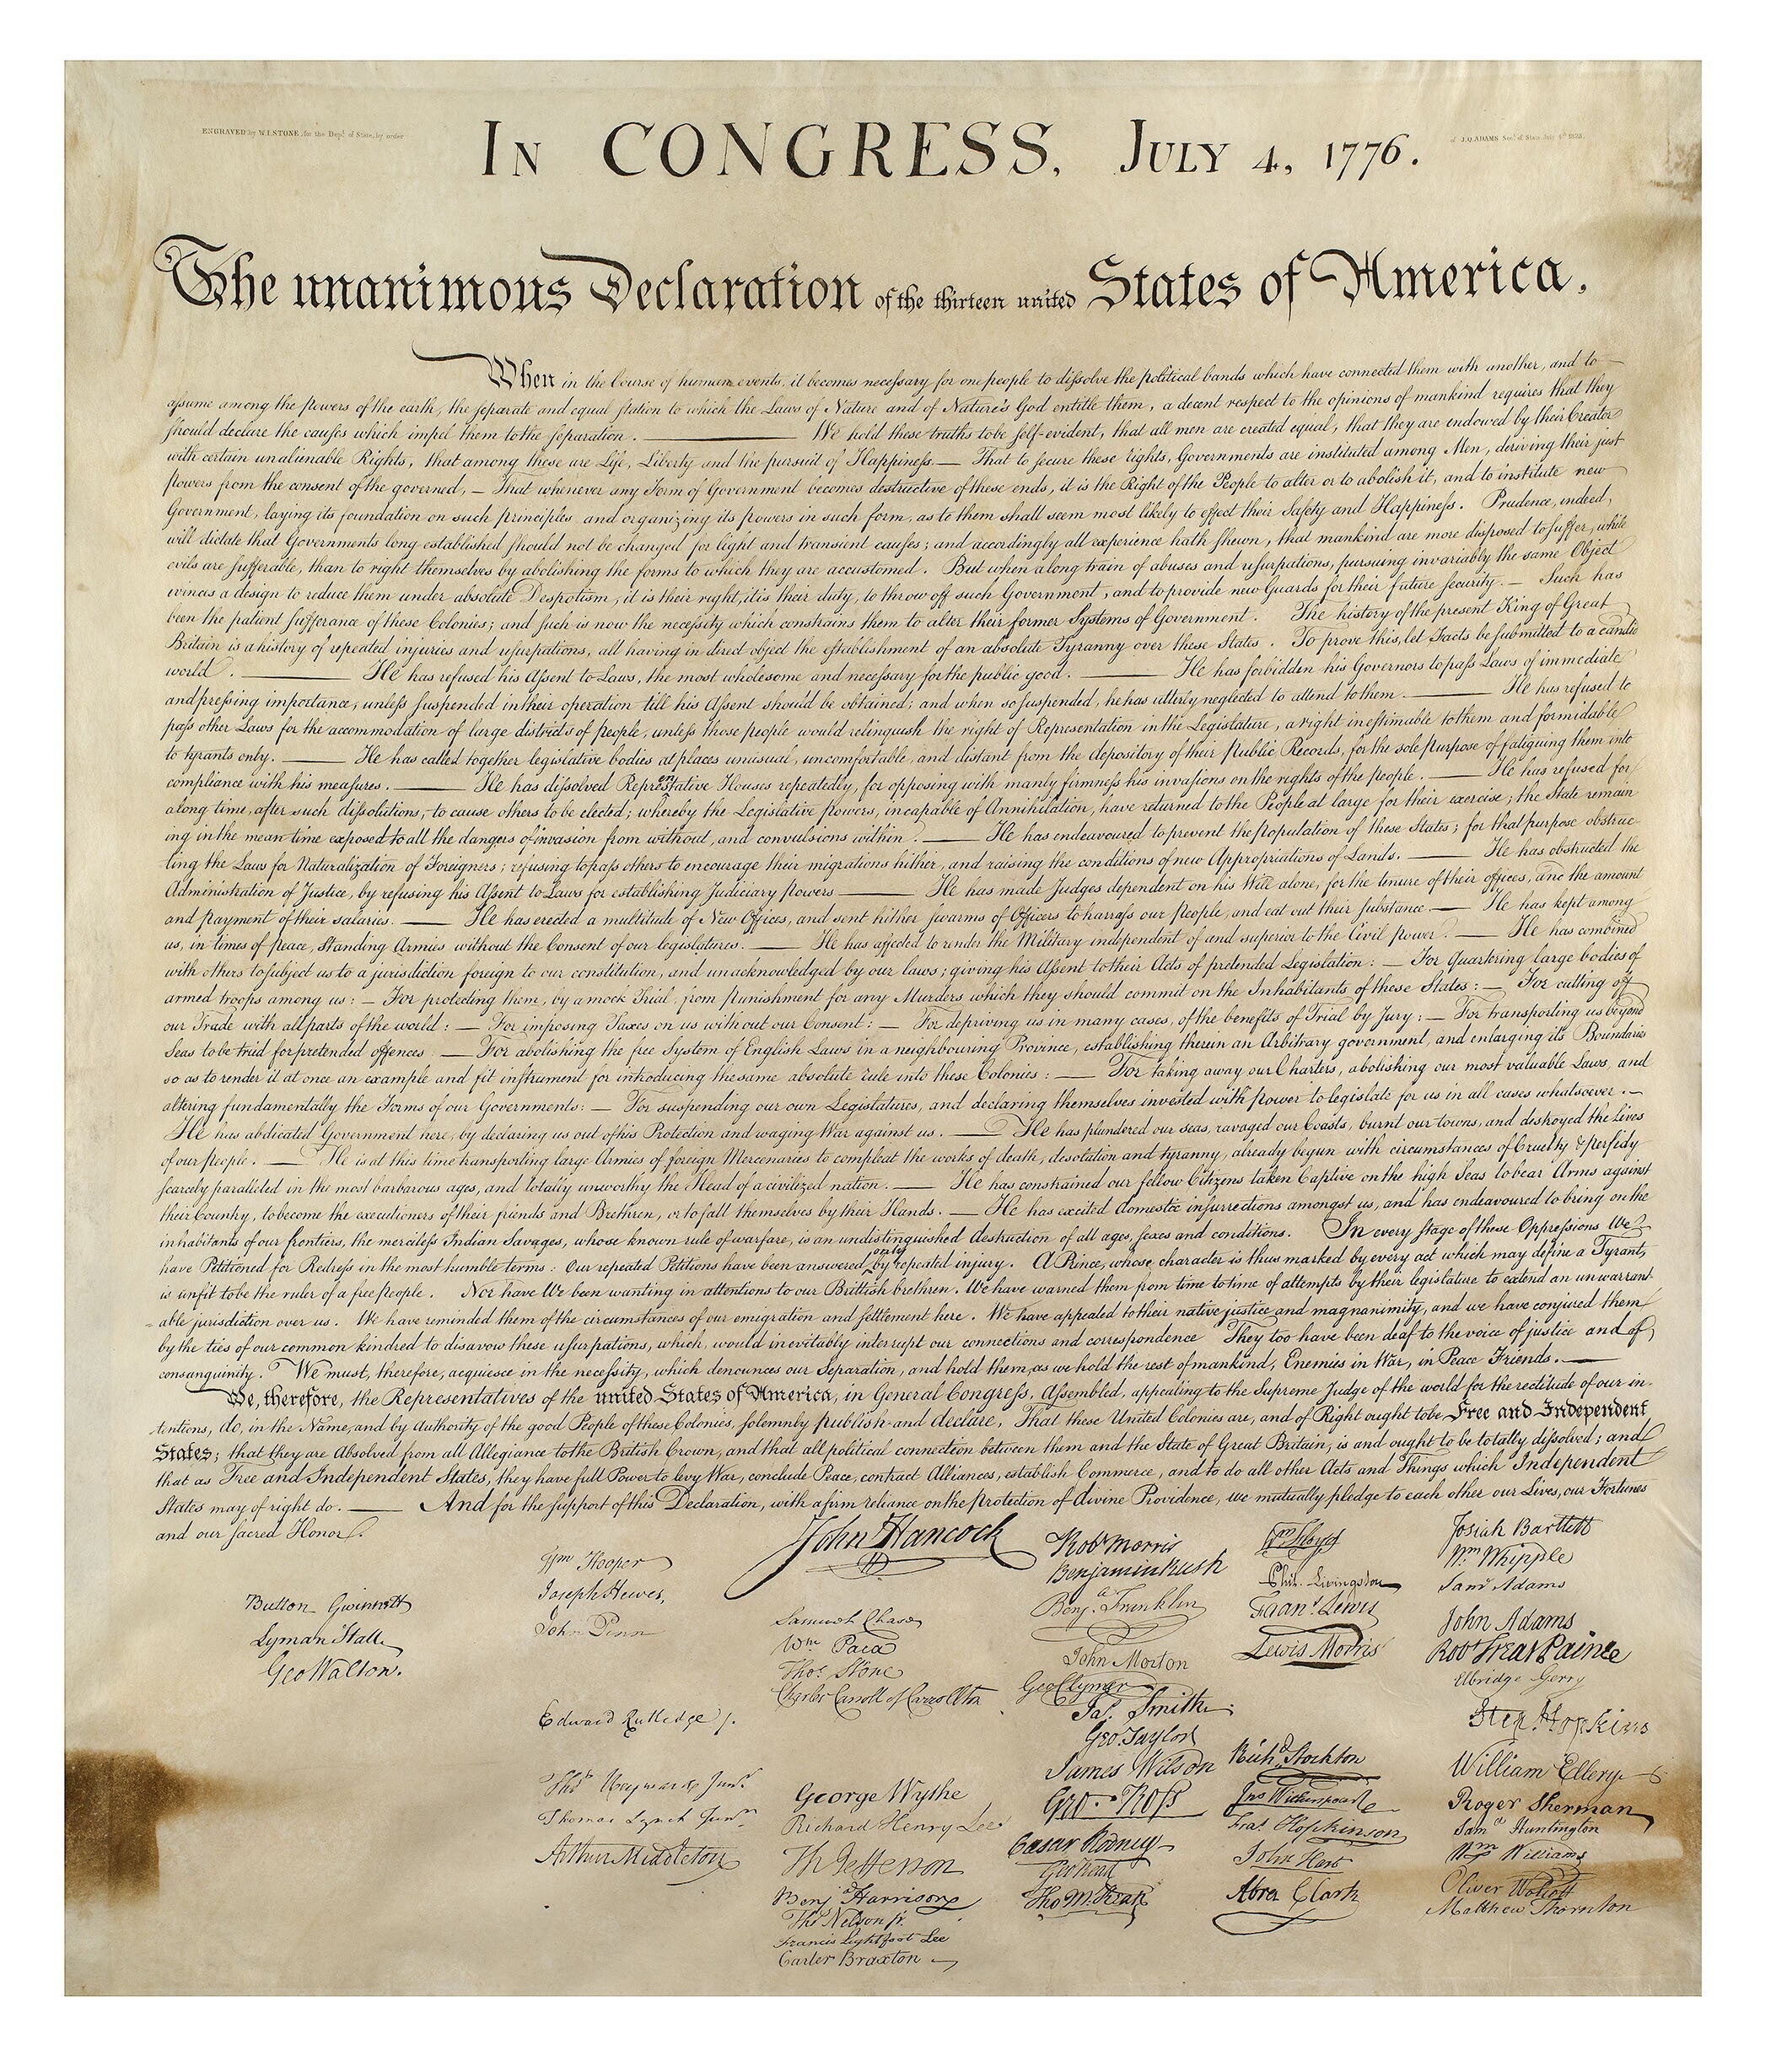 ENGRAVED by W.I.STONE, for the Dept. of State, by order
of J.Q.ADAMS Sect. of State, July 4th 1823.
IN CONGRESS, JULY 4, 1776.
The unanimous Declaration of the thirteen united States of America,
When in the Course of human events, it becomes necessary for one people to dissolve the political bands which have connected them with another, and to
assume among the powers of the earth, the separate and equal station to which the Laws of Nature and of Nature's God entitle them, a decent respect to the opinions of mankind requires that they
should declare the causes which impel them to the separation. — We hold these truths to be self-evident, that all men are created equal, that they are endowed by their Creator
with certain unalienable Rights, that among these are Life, Liberty and the pursuit of Happiness.— That to secure these rights, Governments are instituted among Men, deriving their just
powers from the consent of the governed, — That whenever any Form of Government becomes destructive of these ends, it is the Right of the People to alter or to abolish it, and to institute new
Government, laying its foundation on such principles and organizing its powers in such form, as to them shall seem most likely to effect their Safety and Happiness. Prudence, indeed,
will dictate that Governments long established should not be changed for light and transient causes; and accordingly all experience hath shewn, that mankind are more disposed to suffer, while
evils are sufferable, than to right themselves by abolishing the forms to which they are accustomed. But when a long train of abuses and usurpations, pursuing invariably the same Object
evinces a design to reduce them under absolute Despotism, it is their right, it is their duty, to throw off such Government, and to provide new Guards for their future security.— Such has
been the patient sufferance of these Colonies; and such is now the necessity which constrains them to alter their former Systems of Government. The history of the present King of Great
Britain is a history of repeated injuries and usurpations, all having in direct object the establishment of an absolute Tyranny over these States. To prove this, let Facts be submitted to a candid
world. — He has refused his Assent to Laws, the most wholesome and necessary for the public good. — He has forbidden his Governors to pass Laws of immediate
and pressing importance, unless suspended in their operation till his Assent should be obtained; and when so suspended, he has utterly neglected to attend to them. — He has refused to
pass other Laws for the accommodation of large districts of people, unless those people would relinquish the right of Representation in the Legislature, a right inestimable to them and formidable
to tyrants only. — He has called together legislative bodies at places unusual, uncomfortable, and distant from the depository of their Public Records, for the sole purpose of fatiguing them into
compliance with his measures. — He has dissolved Representative Houses repeatedly, for opposing with manly firmness his invasions on the rights of the people. — He has refused for
a long time, after such dissolutions, to cause others to be elected; whereby the Legislative powers, incapable of Annihilation, have returned to the People at large for their exercise; the State remain
ing in the mean time exposed to all the dangers of invasion from without, and convulsions within. — He has endeavoured to prevent the population of these States; for that purpose obstruc-
ting the Laws for Naturalization of Foreigners; refusing to pass others to encourage their migrations hither, and raising the conditions of new Appropriations of Lands. — He has obstructed the
Administration of Justice, by refusing his Assent to Laws for establishing Judiciary powers — He has made Judges dependent on his Will alone, for the tenure of their offices, and the amount
and payment of their salaries. — He has erected a multitude of New Offices, and sent hither swarms of Officers to harrass our people, and eat out their substance.— He has kept among
us, in times of peace, Standing Armies without the Consent of our legislatures. — He has affected to render the Military independent of and superior to the Civil power. — He has combined
with others to subject us to a jurisdiction foreign to our constitution, and unacknowledged by our laws; giving his Assent to their Acts of pretended Legislation: — For Quartering large bodies of
armed troops among us: — For protecting them, by a mock Trial, from punishment for any Murders which they should commit on the Inhabitants of these States: — For cutting off
our Trade with all parts of the world: — For imposing Taxes on us without our Consent: — For depriving us in many cases, of the benefits of Trial by Jury: — For transporting us beyond
Seas to be tried for pretended offences — For abolishing the free System of English Laws in a neighbouring Province, establishing therein an Arbitrary government, and enlarging its Boundaries
so as to render it at once an example and fit instrument for introducing the same absolute rule into these Colonies: — For taking away our Charters, abolishing our most valuable Laws, and
altering fundamentally the Forms of our Governments: — For suspending our own Legislatures, and declaring themselves invested with power to legislate for us in all cases whatsoever.—
He has abdicated Government here, by declaring us out of his Protection and waging War against us. — He has plundered our seas, ravaged our Coasts, burnt our towns, and destroyed the Lives
of our people. — He is at this time transporting large Armies of foreign Mercenaries to compleat the works of death, desolation and tyranny, already begun with circumstances of Cruelty & perfidy
scarcely paralleled in the most barbarous ages, and totally unworthy the Head of a civilized nation. — He has constrained our fellow Citizens taken Captive on the high Seas to bear Arms against
their Country, to become the executioners of their friends and Brethren, or to fall themselves by their Hands. — He has excited domestic insurrections amongst us, and has endeavoured to bring on the
inhabitants of our frontiers, the merciless Indian Savages, whose known rule of warfare, is an undistinguished destruction of all ages, sexes and conditions. In every stage of these Oppressions We
have Petitioned for Redress in the most humble terms: Our repeated Petitions have been answered only by repeated injury. A Prince, whose character is thus marked by every act which may define a Tyrant,
is unfit to be the ruler of a free people. Nor have We been wanting in attentions to our Brittish brethren. We have warned them from time to time of attempts by their legislature to extend an unwarrant-
able jurisdiction over us. We have reminded them of the circumstances of our emigration and settlement here. We have appealed to their native justice and magnanimity, and we have conjured them
by the ties of our common kindred to disavow these usurpations, which, would inevitably interrupt our connections and correspondence They too have been deaf to the voice of justice and of
consanguinity. We must, therefore, acquiesce in the necessity, which denounces our Separation, and hold them, as we hold the rest of mankind, Enemies in War, in Peace Friends.—
We, therefore, the Representatives of the united States of America, in General Congress, Assembled, appealing to the Supreme Judge of the world for the rectitude of our in-
tentions, do, in the Name, and by Authority of the good People of these Colonies, solemnly publish and declare, That these United Colonies are, and of Right ought to be Free and Independent
States; that they are Absolved from all Allegiance to the British Crown, and that all political connection between them and the State of Great Britain, is and ought to be totally dissolved; and
that as Free and Independent States, they have full Power to levy War, conclude Peace, contract Alliances, establish Commerce, and to do all other Acts and Things which Independent
States may of right do. — And for the support of this Declaration, with a firm reliance on the protection of divine Providence, we mutually pledge to each other our Lives, our Fortunes
and our sacred Honor.
Button Gwinnett
Lyman Hall
Geo Walton.
Wm Hooper
Joseph Hewes,
John Penn
Edward Rutledge /.
Thos Heyward Junr.
Thomas Lynch Junr.
Arthur Middleton
John Hancock
Samuel Chase
Wm Paca
Thos. Stone
Charles Carroll of Carrollton
George Wythe
Richard Henry Lee
Th Jefferson
Benja Harrison
Thos Nelson jr.
Francis Lightfoot Lee
Carter Braxton
Robt Morris
Benjamin Rush
Benja. Franklin
John Morton
Geo Clymer
Jas. Smith
Geo. Taylor
James Wilson
Geo. Ross
Caesar Rodney
Geo Read
Tho M:Kean
Wm Floyd
Phil. Livingston
Frans. Lewis
Lewis Morris
Richd. Stockton
Jno Witherspoon
Fras. Hopkinson
John Hart
Abra Clark
Josiah Bartlett
Wm Whipple
Saml Adams
John Adams
Robt Treat Paine
Elbridge Gerry
Step. Hopkins
William Ellery
Roger Sherman
Saml Huntington
Wm Williams
Oliver Wolcott
Matthew Thornton